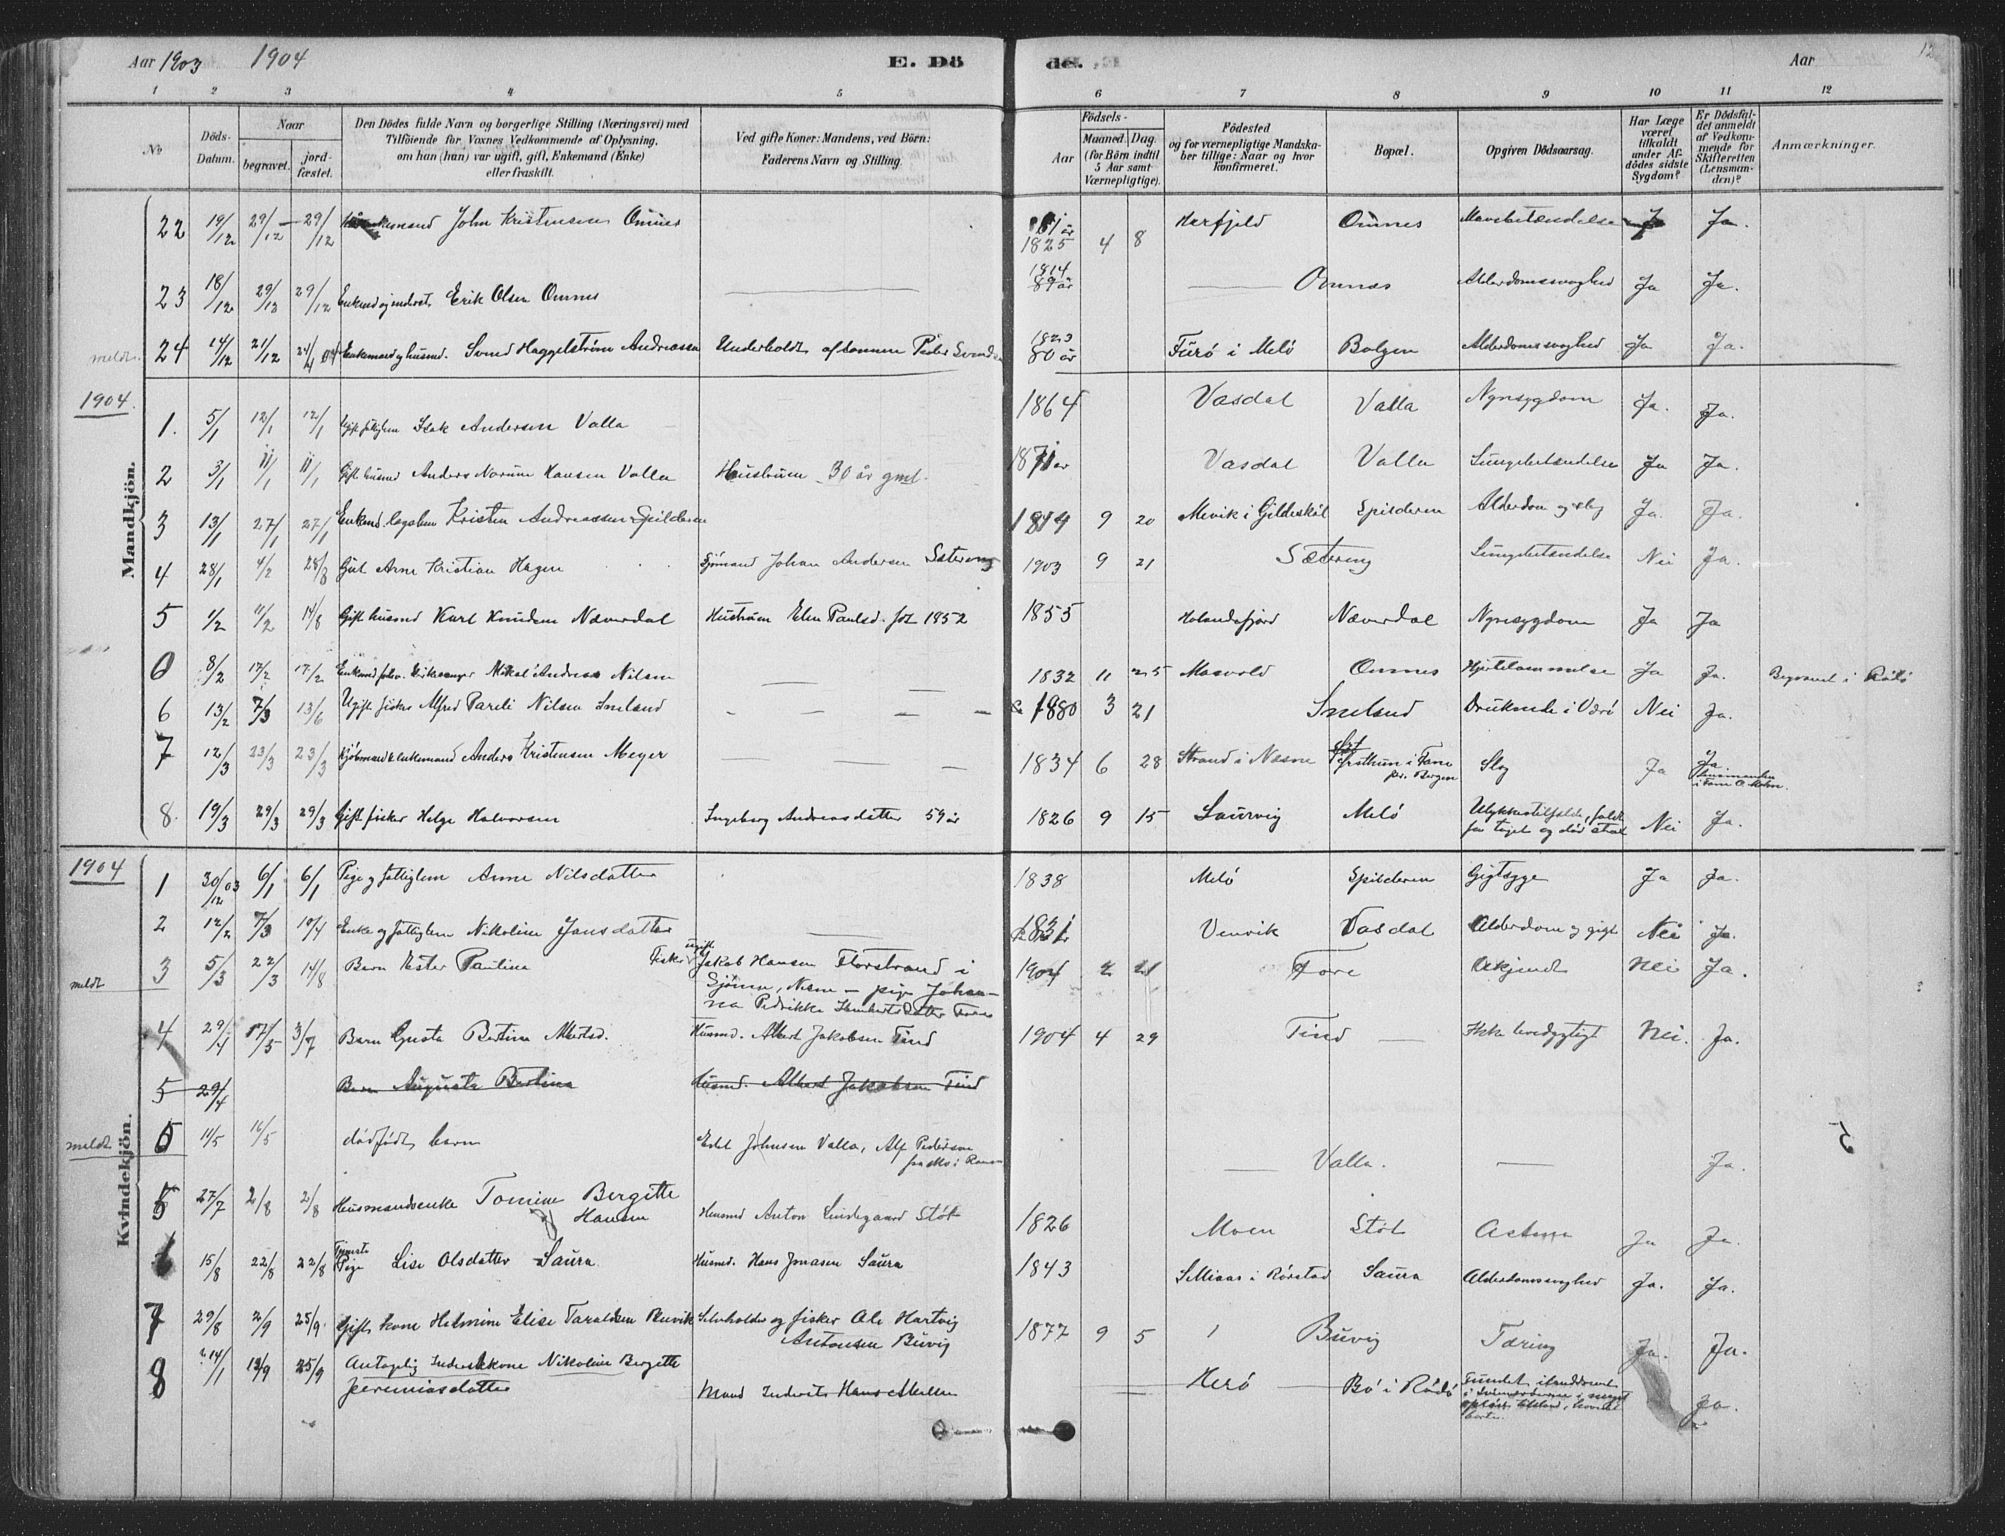 Aar 1903 1904 E. Dö de. Aar 12
1 2 3 4 5 6 7 8 9 10 11 12
No Döds-Datum. Naar begravet. jordfæstet. Den Dödes fulde Navn og borgerlige Stilling (Næringsvei) med Tilföiende for Voxnes Vedkommende af Oplysning, om han (hun) var ugift, gift, Enkemand (Enke) eller fraskilt. Ved gifte Koner: Mandens, ved Börn: Faderens Navn og Stilling. Födsels- Aar Maaned. Dag. (for Börn indtil 5 Aar samt Værnepligtige). Födested og for værnepligtige Mandskaber tillige: Naar og hvor konfirmeret. Bopæl. Opgiven Dödsaarsag. Har Læge været tilkaldt under Afdödes sidste Sygdom? Er Dödsfaldet anmeldt af Vedkommende for Skifteretten (Lensmanden)? Anmærkninger.
Mandkjön.
22 19/12 29/12 - 29/12 John Kristensen Omnes 1825 4 8 Herfjeld Omnes Mavebetændelse Ja Ja.
23 18/12 29/12 29/12 Erik Olsen Omnes 1814 89 år Omnes Alderdomssvaghed Ja Ja.
meldt. 24 14/12 21/12 Enkemand og husmd. Svend Haggelstrøm Andreassen Underholdt af sønnen Peder Svendsen 1823 80 år Furö i Melö Bolgen Alderdomssvaghed Ja Ja.
1904.
1. 5/1 12/1 12/1 Gift Isak Andersen Valla 1864 Vasdal Valla Nyresygdom Ja. Ja.
2 3/1 11/1 11/1 Gift husmd Anders Norum Hansen Valla Hustruen 30 år gml. 1871 Vasdal Valla Lungebetændelse Ja Ja.
3 13/1 27/1 27/1 Enkemd. Kristen Andreassen Spilderen 1819 9 20 Mevik i Gildeskål Spilderen Alderdom og slag Ja. Ja.
4 28/1 4/2 28/8 Gut Arne Kristian Hagen Sjömand Johan Andersen Sætering 1903 9 21 Sætering Lungebetændelse Nei Ja.
5 1/2 11/2 14/8 Gift husmd Karl Knudsen Næverdal Hustruen Elen Paulsd. föt 1852 1855 Holandsfjord Næverdal Nyresygdom Ja Ja
0 8/2 17/2 17/2 Enkemd Kirkesanger Mikal Andreas Nilsen 1832 11 25 Masvold Omnes Hjertelammelse Ja Ja. Begravet i Rödö
6 13/2 7/3 13/6 Ugift fisker Alfred Pareli Nilsen Smelsund 1880 3 21 Smelsund Druknede i Værö Nei Ja.
7 12/3 23/3 23/3 Kjöbmand & enkemand Anders Kristensen Meyer 1834 6 28 Strand i Næsne i Fane pr. Bergen Slag Ja Ja.
8. 19/3 29/3 29/3 Gift fisker Helge Halvorsen Ingeborg Andreasdatter 59 år 1826 9 15 Saurvig Melö Ulykkestilfælde, faldt fra taget og döde strax Nei Ja.
1904
Kvindekjön.
1 30/12 03 6/1 6/1 Pige og fattiglem Anne Nilsdatter 1838 Melö Spilderen Gigtsyge Ja Ja.
2 12/2 7/3 10/4 Enke og fattiglem Nikoline Jansdatter 1831 Venvik Vasdal Alderdom og gigt Nei Ja.
meldt 3 5/3 22/3 14/8 Barn Ester Paulina Fisker ugift Jakob Hansen Florstrand i Sjönen, Nesne - pige Johanna Pedrikke Lambertsdatter Fore 1904 2 21 Fore Ukjendt Nei Ja.
4 29/4 17/5 3/7 Barn Gusta Bertine Albertsd. Husmd. Albert Jakobsen Tind 1904 4 29 Tind Ikke levedygtigt Nei. Ja.
5 29/4 Barn Augusta Bertina Husmd. Albert Jakobsen Tind
meldt 5 11/5 16/5 dödfödt barn Edel Johnsen Valla, Alf Pedersen fra Mo i Ranen Valla. Ja. 5
5 27/7 2/8 2/8 Husmandsenke Tomine Bergitte Hansen Husmd Anton Lindegaard Stöt 1826 Moen Stöt Astma Ja Ja.
6 15/8 22/8 22/8 Tjeneste Pige Lise Olsdatter Saura Husmd. Hans Jonasen Saura 1843 i Rörstad Saura Alderdomssvaghed Ja. Ja.
7 29/8 2/9 25/9. Gift kone Helmine Elise Taraldsen Buvik Selvholder og fisker Ole Hartvig Antonsen Buvig 1877 9 5 Buvig Tæring Ja. Ja.
8 14/1 12/9 25/9 Antagelig Inderstkone Nikoline Bergitte Jeremiasdatter Mand Inderst Hans Mikelsen Herö Bö i Rödö Fundet Ja.